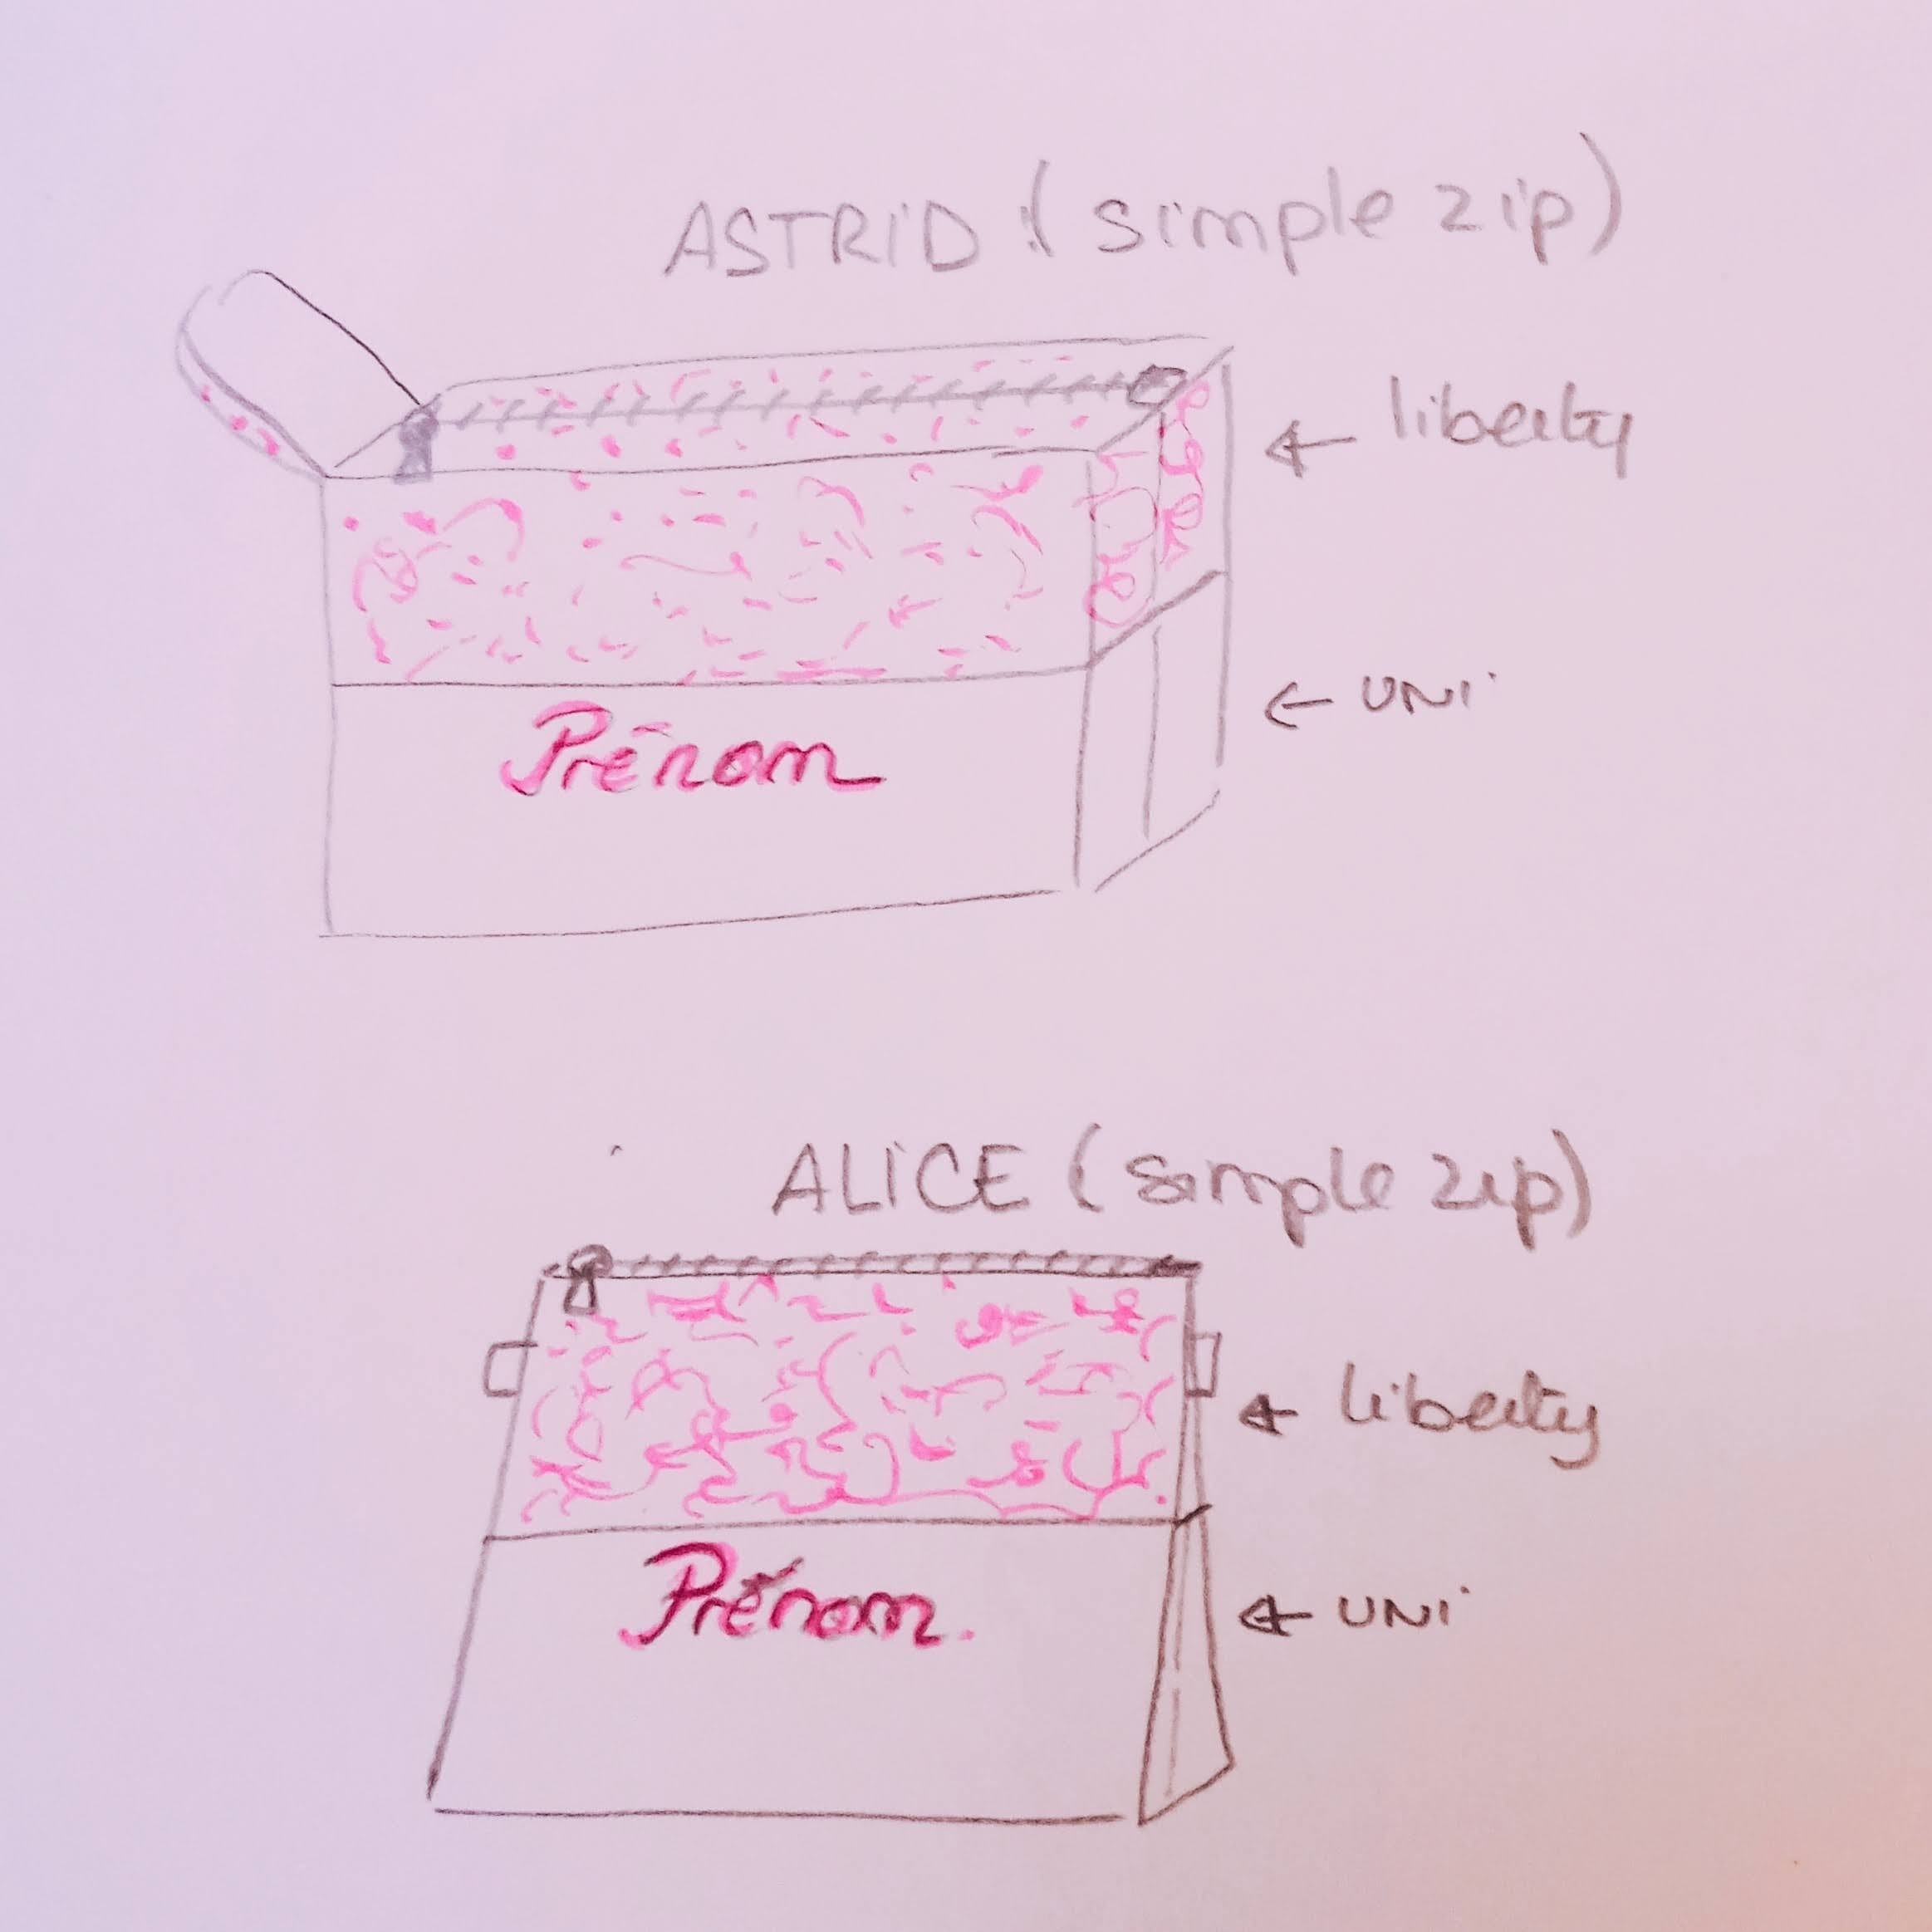 ASTRID : (simple zip)
← liberty
← UNI
Prénom
ALICE (simple zip)
← liberty
← UNI
Prénom.